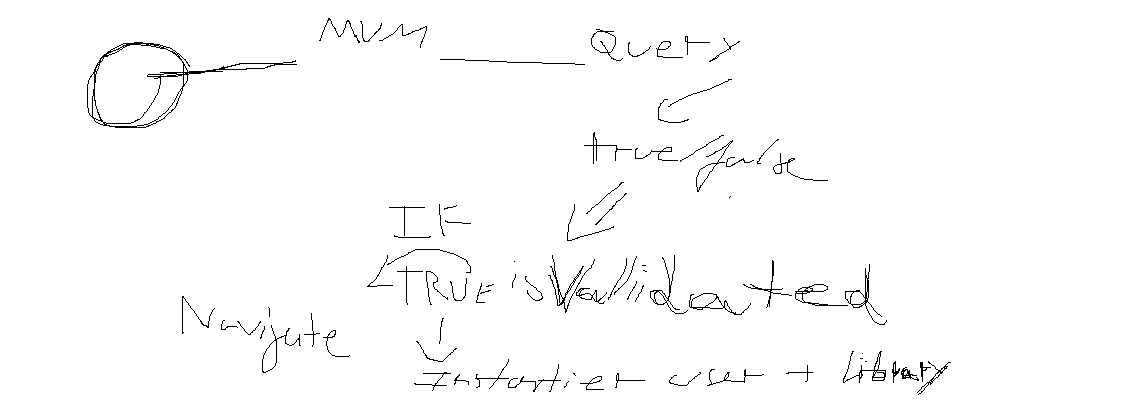 MVM
Query
true/false
IF
TRUE isValidated
Navigate
Instantier user + Library